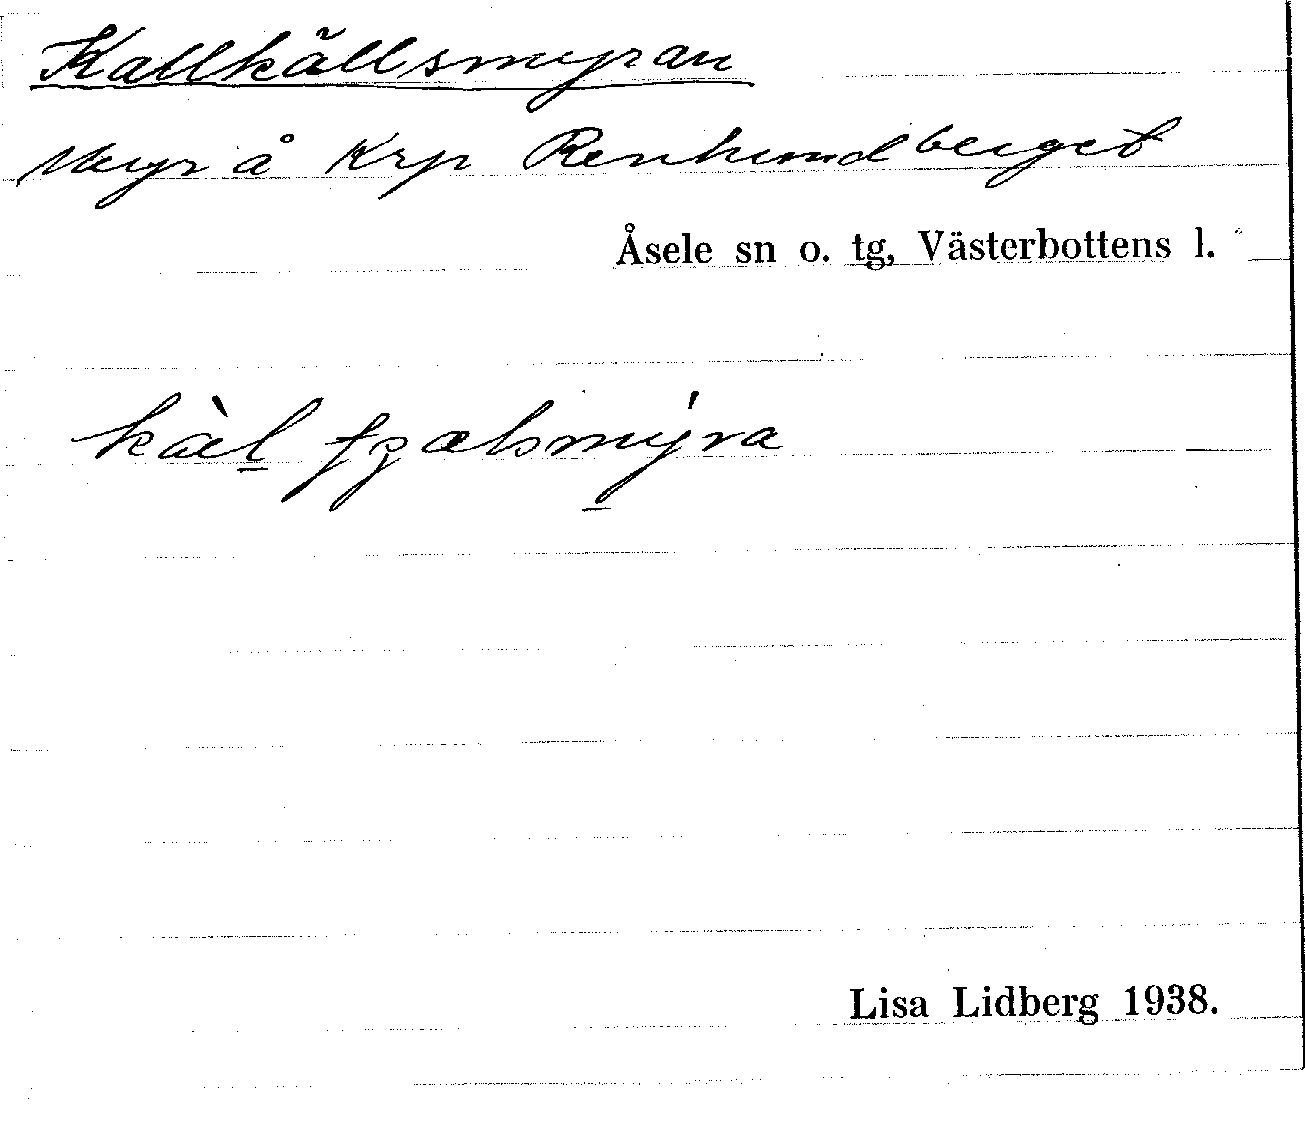 Kallkällsmyran
Myr å Krp Renhundberget
Åsele sn o. tg, Västerbottens l.
kàl fʒælsmýra
Lisa Lidberg 1938.